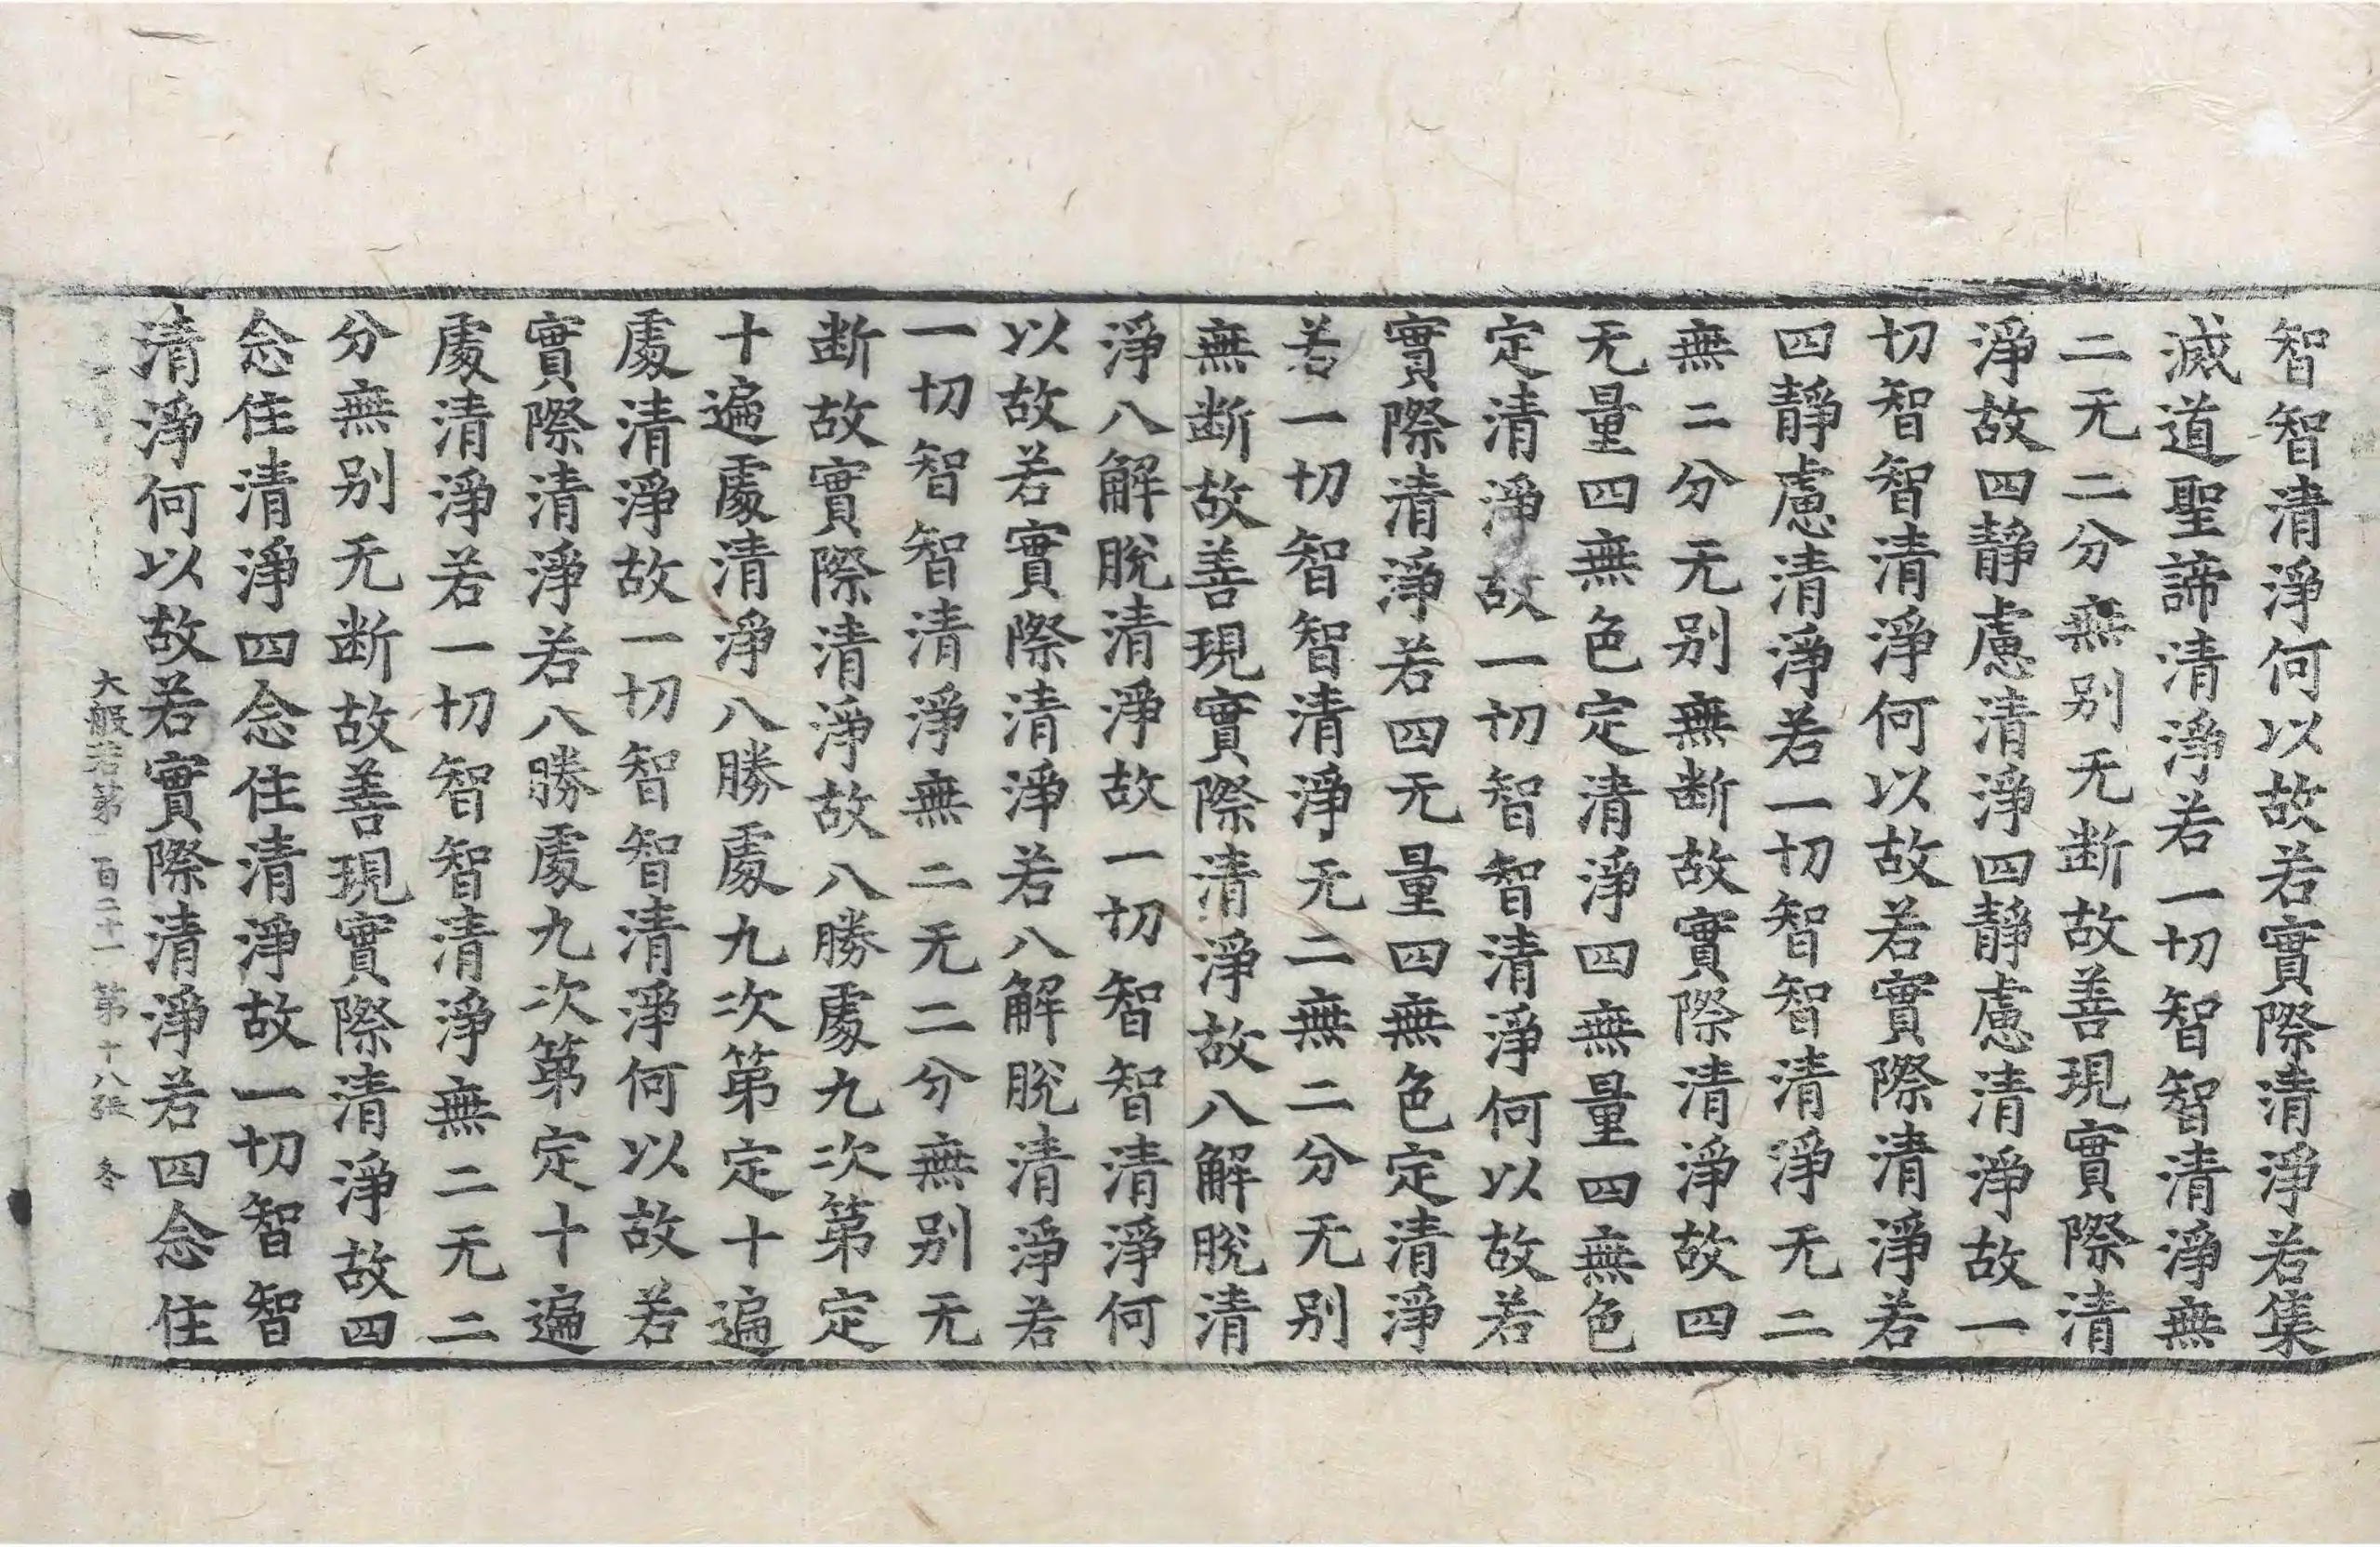 智智清淨何以故若實際清淨若集
滅道聖諦清淨若一切智智清淨無
二无二分無別无断故善現實際清
淨故四靜慮清淨四靜慮清淨故一
切智智清淨何以故若實際清淨若
四靜慮清淨若一切智智清淨无二
無二分无別無断故實際清淨故四
无量四無色定清淨四無量四無色
定清淨故一切智智清淨何以故若
實際清淨若四无量四無色定清淨
若一切智智清淨无二無二分无別
無断故善現實際清淨故八解脫清
淨八解脫清淨故一切智智清淨何
以故若實際清淨若八解脫清淨若
一切智智清淨無二无二分無別无
断故實際清淨故八勝處九次第定
十遍處清淨八勝處九次第定十遍
處清淨故一切智智清淨何以故若
實際清淨若八勝處九次第定十遍
處清淨若一切智智清淨無二无二
分無別无断故善現實際清淨故四
念住清淨四念住清淨故一切智智
清淨何以故若實際清淨若四念住
大般若第一百二十一 第十八张 冬